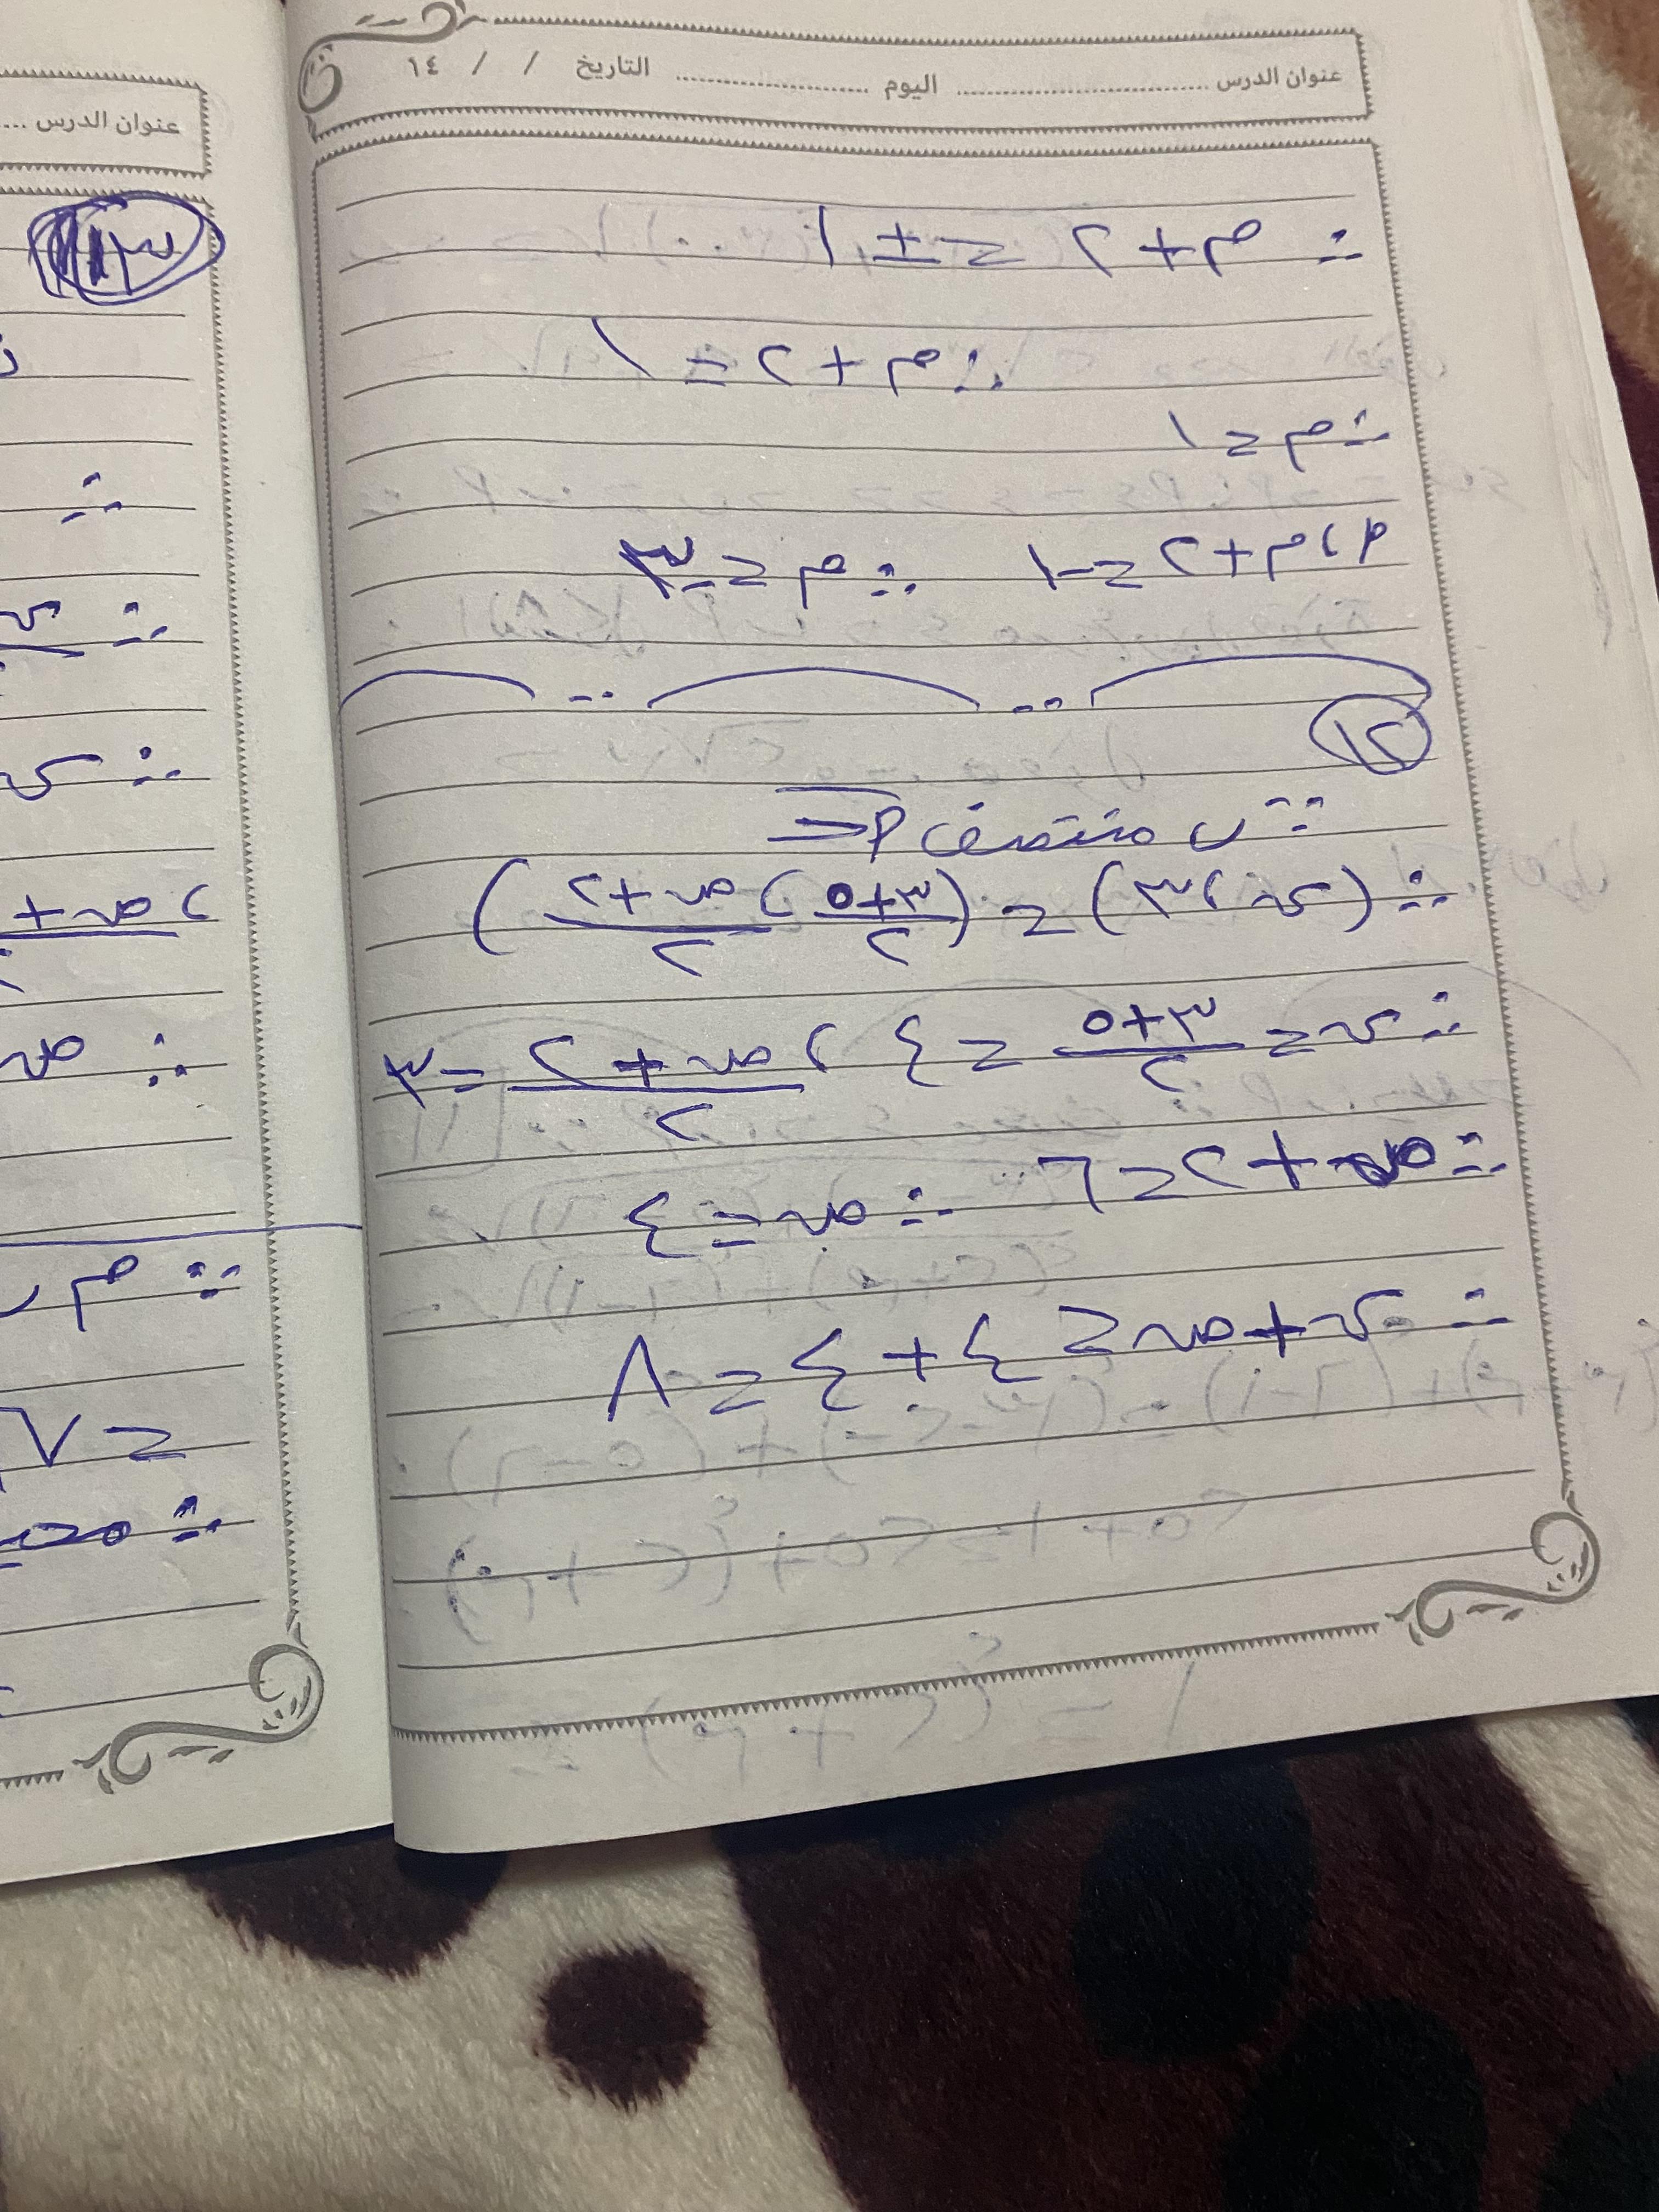 عنوان الدرس ........ اليوم ........ التاريخ / / ١٤
∴ م + ٢ = ± ١
∴ م + ٢ = ١
∴ م = ١
، م + ٢ = -١ ∴ م = -٣
١٢
∵ ب منتصف أحـ
∴ (س ، ٣) = (٣+٥/٢ ، ص+٢/٢)
∴ س = ٣+٥/٢ = ٤ ، ص+٢/٢ = ٣
∴ ص + ٢ = ٦ ∴ ص = ٤
∴ س + ص = ٤ + ٤ = ٨
عنوان الدرس ...
١٣
∵
∴ س
∴ س
، ص +
∴ ص
∵ م
= ٧
∴ محيط